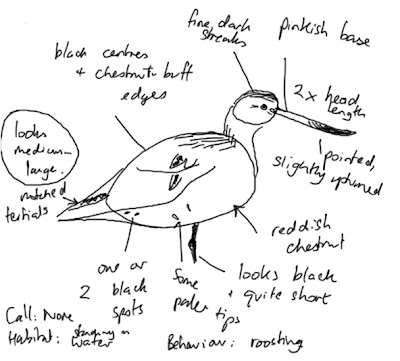 fine, dark
streaks
pinkish base
black centres
+ chestnut-buff
edges
2 x head
length
looks
medium-
large.
pointed,
slightly upturned
notched
tertials
reddish
chestnut
one or
2 black
spots
some
paler
tips
looks black
+ quite short
Call: None
Habitat: standing in
water
Behaviour: roosting